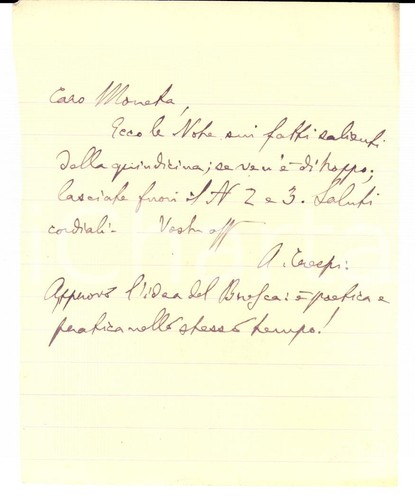 Caro Moneta,
Ecco le Note sui fatti salienti
della quindicina; se ven'è di troppo,
lasciate fuori il N 2 e 3. Saluti
cordiali - Vostro aff
A. Crespi.
Approvo l'idea del Brosca: è poetica e
pratica nello stesso tempo!